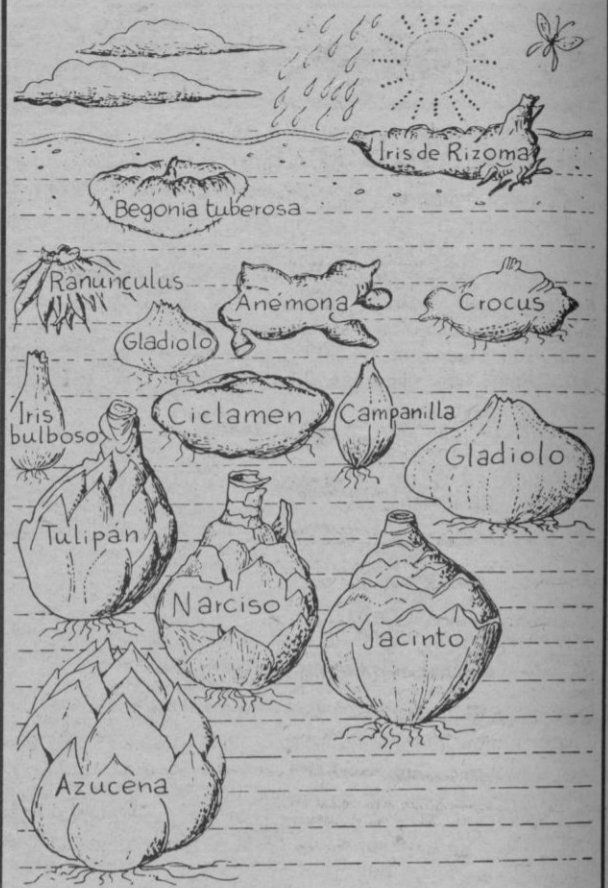 Iris de Rizoma
Begonia tuberosa
Ranunculus
Anémona
Crocus
Gladiolo
Iris
bulboso
Ciclamen
Campanilla
Gladiolo
Tulipán
Narciso
Jacinto
Azucena